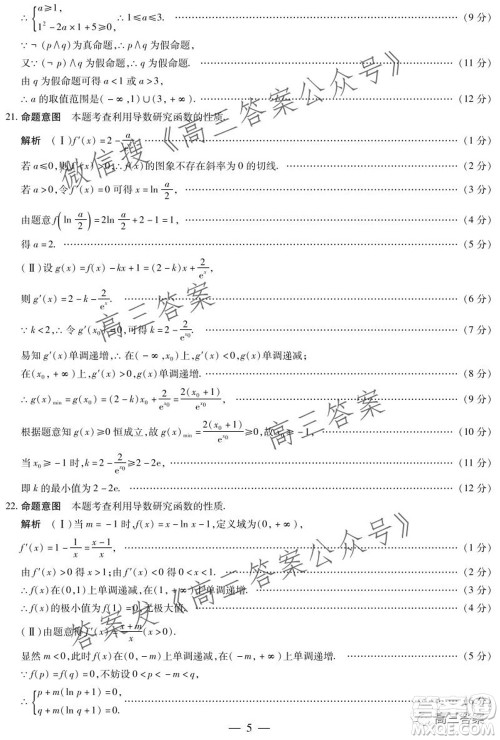 ∴ { a≥1, 1²-2a×1+5≥0, ∴ 1≤a≤3. (9 分)
∵ ¬(p∧q)为真命题,∴ p∧q 为假命题,
又∵ ¬(p∧q)为假命题,∴ q 为假命题. (11 分)
由 q 为假命题可得 a<1 或 a>3,
∴ a 的取值范围是(-∞,1)∪(3,+∞). (12 分)
21. 命题意图 本题考查利用导数研究函数的性质.
解析 (Ⅰ)f′(x)=2-a (1 分)
若 a≤0,则 f′(x)>0,∴ f(x)的图象不存在斜率为 0 的切线. (2 分)
若 a>0,令 f′(x)=0 可得 x=ln a/2, (3 分)
由题意 f(ln a/2)=2ln a/2+2-1=1, (4 分)
得 a=2. (5 分)
(Ⅱ)设 g(x)=f(x)-kx+1=(2-k)x+2/eˣ,
则 g′(x)=2-k-2/eˣ. (6 分)
∵ k<2,∴ 令 g′(x₀)=0,可得 k=2-2/e^x₀. (7 分)
易知 g′(x)单调递增,∴ 在(-∞,x₀)上,g′(x)<0,g(x)单调递减;
在(x₀,+∞)上,g′(x)>0,g(x)单调递增. (8 分)
∴ g(x)min=g(x₀)=(2-k)x₀+2/e^x₀=2(x₀+1)/e^x₀. (9 分)
根据题意知 g(x)≥0 恒成立,故 g(x)min=2(x₀+1)/e^x₀≥0,故 (10 分)
当 x₀≥-1 时,k=2-2/e^x₀≥2-2e, (11 分)
即 k 的最小值为 2-2e. (12 分)
22. 命题意图 本题考查利用导数研究函数的性质.
解析 (Ⅰ)当 m=-1 时,f(x)=x-ln x,定义域为(0,+∞),
f′(x)=1-1/x=(x-1)/x, (1 分)
由 f′(x)>0 得 x>1;由 f′(x)<0 得 0<x<1, (2 分)
∴ f(x)在(0,1)上单调递减,在(1,+∞)上单调递增. (3 分)
∴ f(x)的极小值为 f(1)=1,无极大值. (4 分)
(Ⅱ)由题意得 f′(x)=(x+m)/x(x>0).
显然 m<0,此时 f(x)在(0,-m)上单调递减,在(-m,+∞)上单调递增. (5 分)
∵ f(p)=f(q)=0,不妨设 0<p<-m<q,
∴ { p+m(ln p+1)=0, q+m(ln q+1)=0,
— 5 —
微信搜《高三答案公众号》
高三答案
高三答案
答案发《高三答案公众号》
高三答案